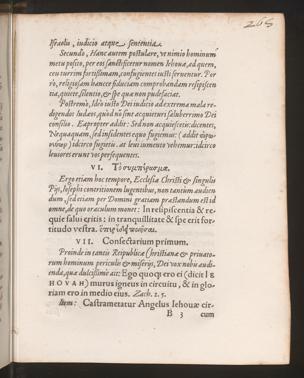 265
Israelis, iudicio atque sententia.
Secundo, Hanc autem postulare, ut nimio hominum
metu posito, per eos sanctificetur nomen Iehouæ, ad quem,
ceu turrim fortissimam, confugientes iusti seruentur. Por
rò, religiosam hancce fiduciam comprobandam resipiscen
tia, quiete, silentio, & spe quæ non pudefaciat.
Postremò, Ideo iusto Dei iudicio ad extrema mala re-
digendos Iudæos, quòd nõ sint acquieturi saluberrimo Dei
consilio. Ea propter addit: Sed non acquiescetis: dicentes,
Nequaquam, sed insidentes equo fugiemus: (addit
) idcirco fugietis. at leui iumento vehemur: idcirco
leuiores erunt vos persequentes.
VI. Τὸ συμπέρασμα.
Ergo etiam hoc tempore, Ecclesiæ Christi & singulis
Pijs, Iosephi contritionem lugentibus, non tantum audien
dum, sed etiam per Domini gratiam præstandum est id
omne, de quo oraculum monet: In resipiscentia & re-
quie salui eritis: in tranquillitate & spe erit for-
titudo vestra.
VII. Consectarium primum.
Proinde in tantis Reipublicæ Christianæ & priuato-
rum hominum periculis & miserijs, Dei vox nobis audi-
enda, quæ dulcissimè ait: Ego quoq; ero ei (dicit IE
HOVAH) murus igneus in circuitu, & in glo-
riam ero in medio eius. Zach. 2. 5.
Item: Castrametatur Angelus Iehouæ cir-
B 3 cum